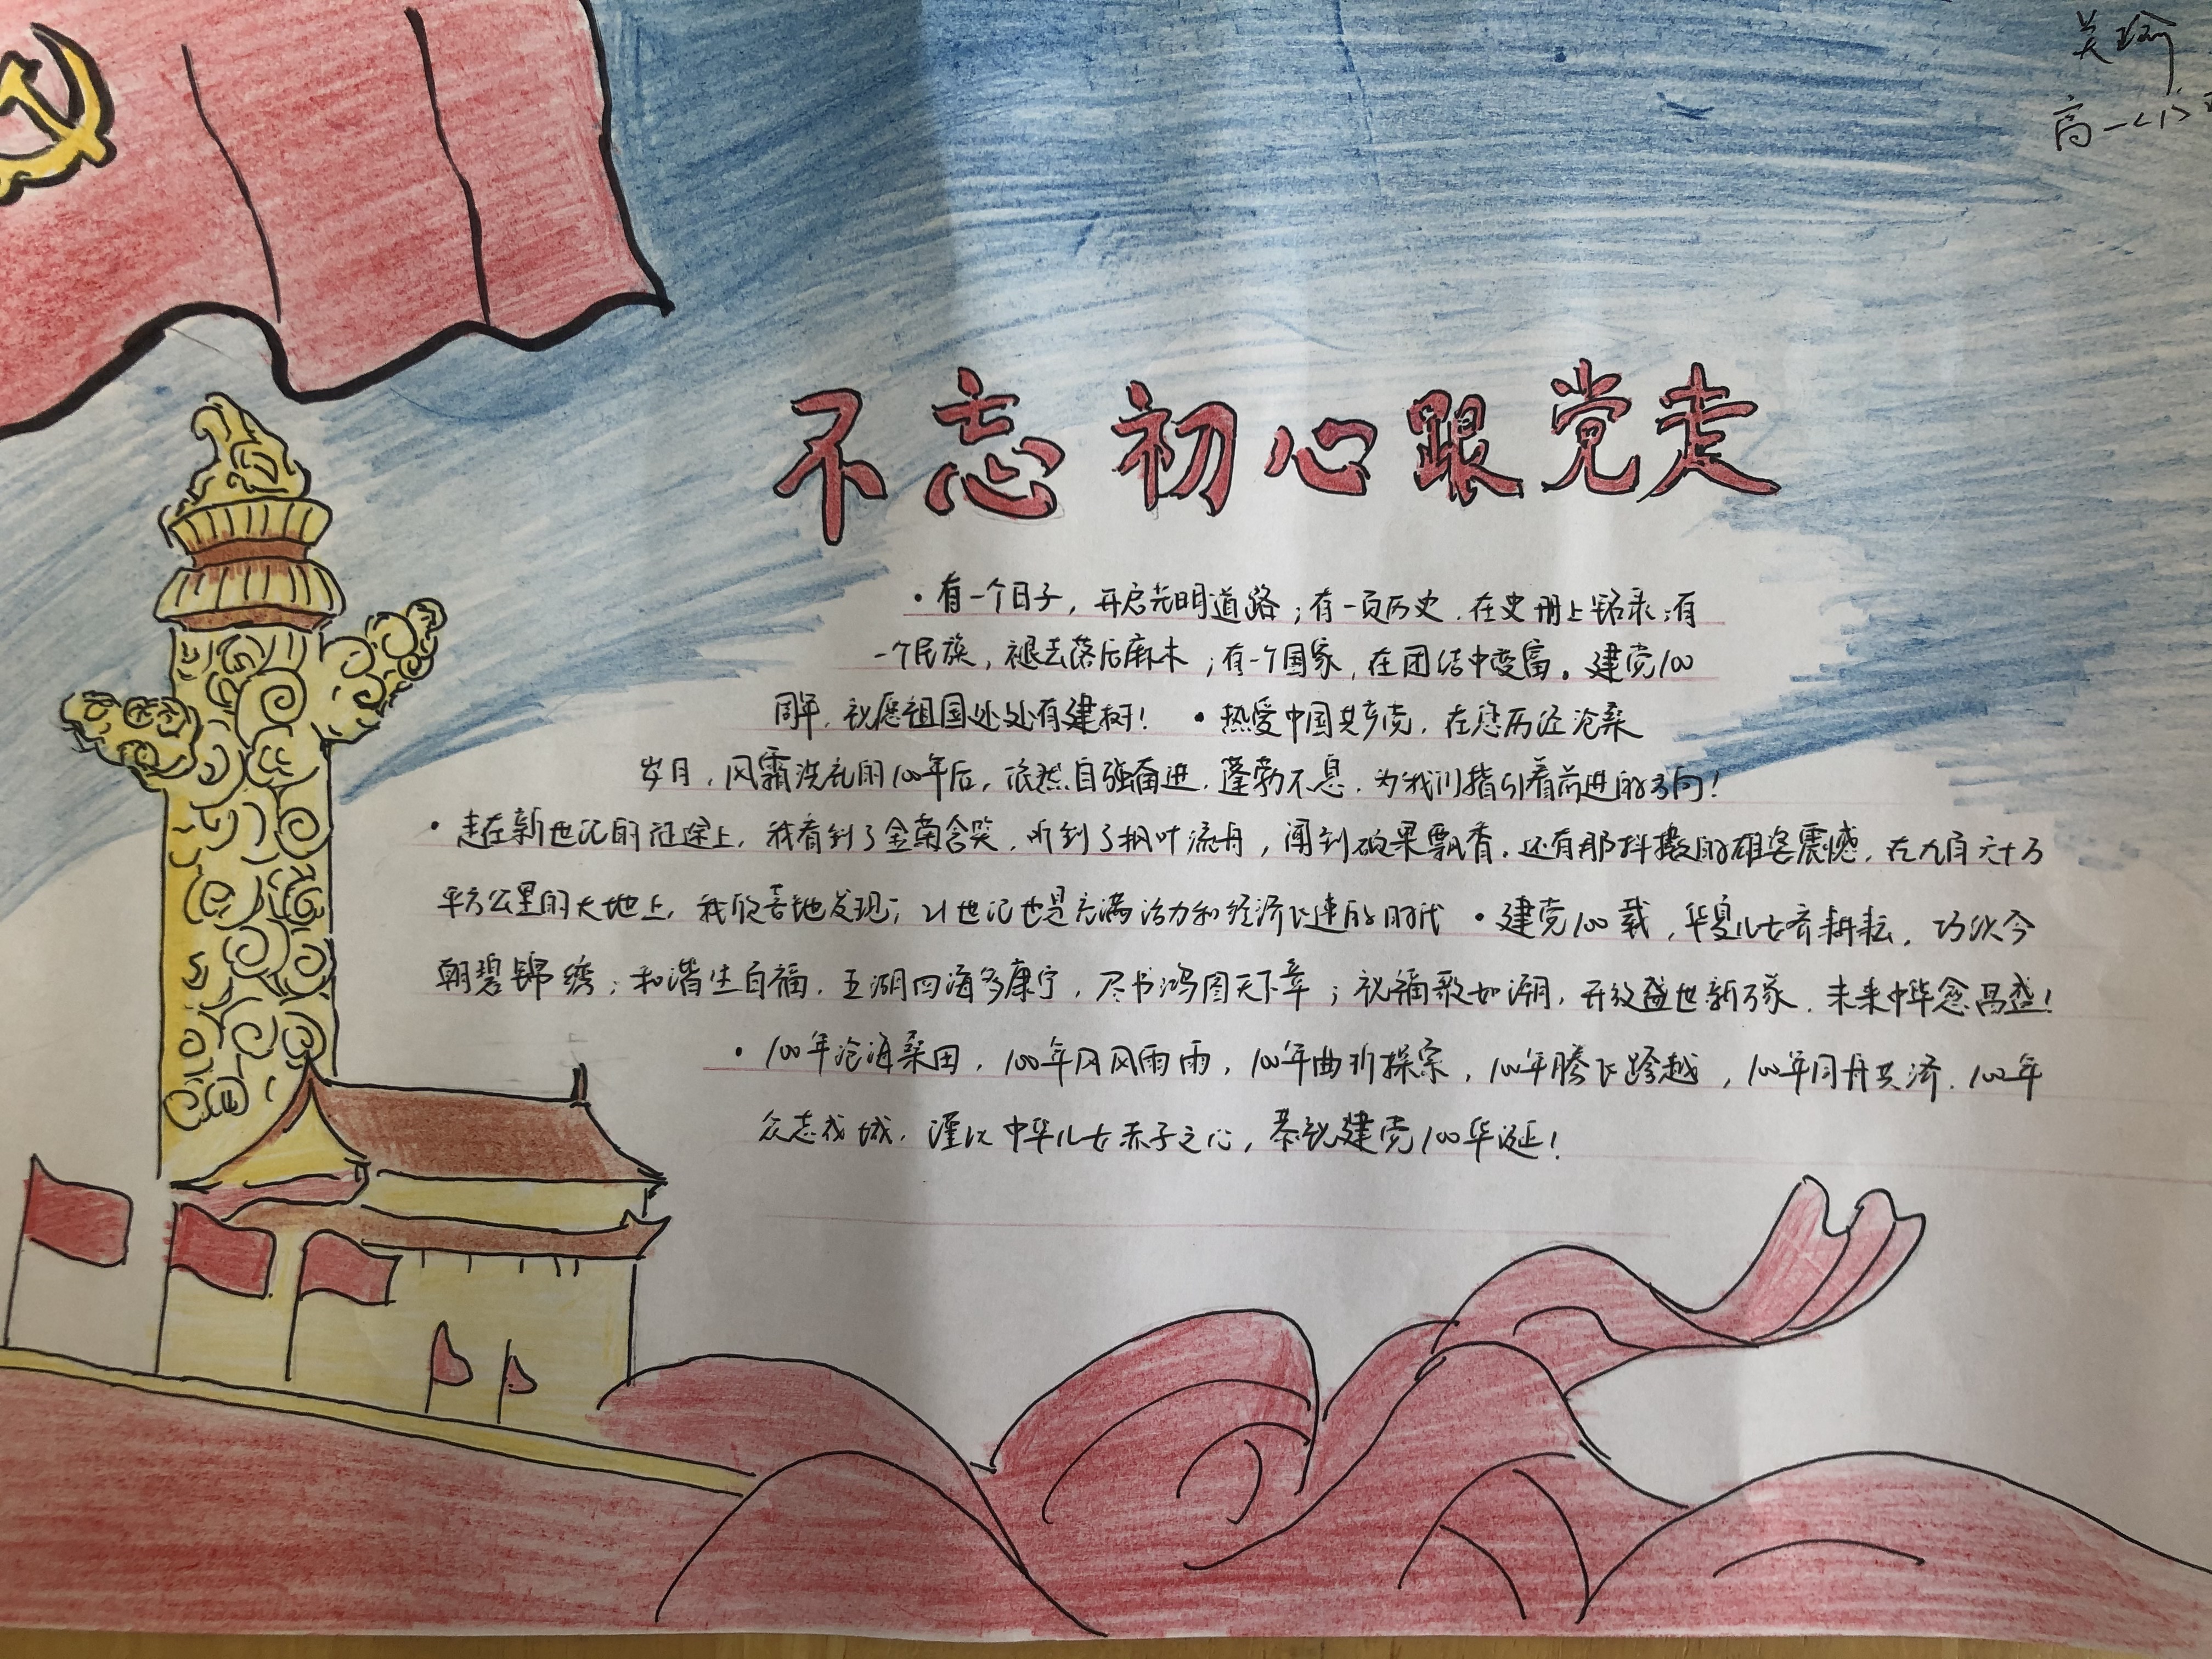 高一(1)
不忘初心跟党走
·有一个日子，开启光明道路；有一页历史，在史册上铭录；有
一个民族，褪去落后麻木；有一个国家，在团结中变富。建党100
周年，祝愿祖国处处有建树！ ·热爱中国共产党，在您历经沧桑
岁月，风霜洗礼的100年后，依然自强奋进，蓬勃不息，为我们指引着前进的方向！
·走在新世纪的征途上，我看到了金菊含笑，听到了枫叶流丹，闻到硕果飘香，还有那抖擞的雄姿震憾，在九百六十万
平方公里的大地上，我欣喜地发现；21世纪也是充满活力和经济飞速的时代 ·建党100载，华夏儿女齐耕耘，巧伙今
朝碧锦绣；和谐生百福，五湖四海多康宁，尽书鸿图天下幸；祝福歌如潮，开放盛世新，未来中华愈昌盛！
·100年沧海桑田，100年风风雨雨，100年曲折探索，100年腾飞跨越，100年同舟共济，100年
众志成城，谨以中华儿女赤子之心，恭祝建党100华诞！